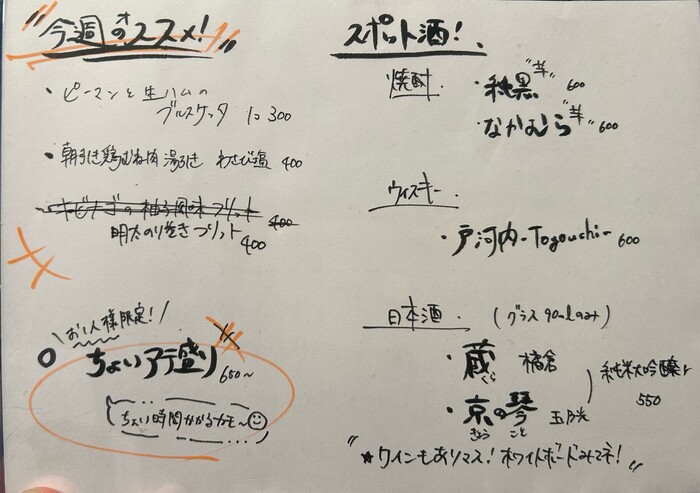 "今週のオススメ!"
・ピーマンと生ハムの
ブルスケッタ 1コ 300
・朝引き鶏むね肉 湯引き わさび塩 400
キビナゴの柚子風味フリット 400
明太のり巻きフリット 400
\お1人様限定!/
○ ちょいアテ盛り 650~
ちょい時間かかるカモ~
スポット酒!
焼酎.
・純黒"芋" 600
・なかむら"芋" 600
ウィスキー.
・戸河内-Togouchi- 600
日本酒. (グラス90mlのみ)
・蔵 橘倉
くら
純米大吟醸
550
・京の琴 玉乃光
きょう こと
"★ワインもありマス! ホワイトボードみてネ!"